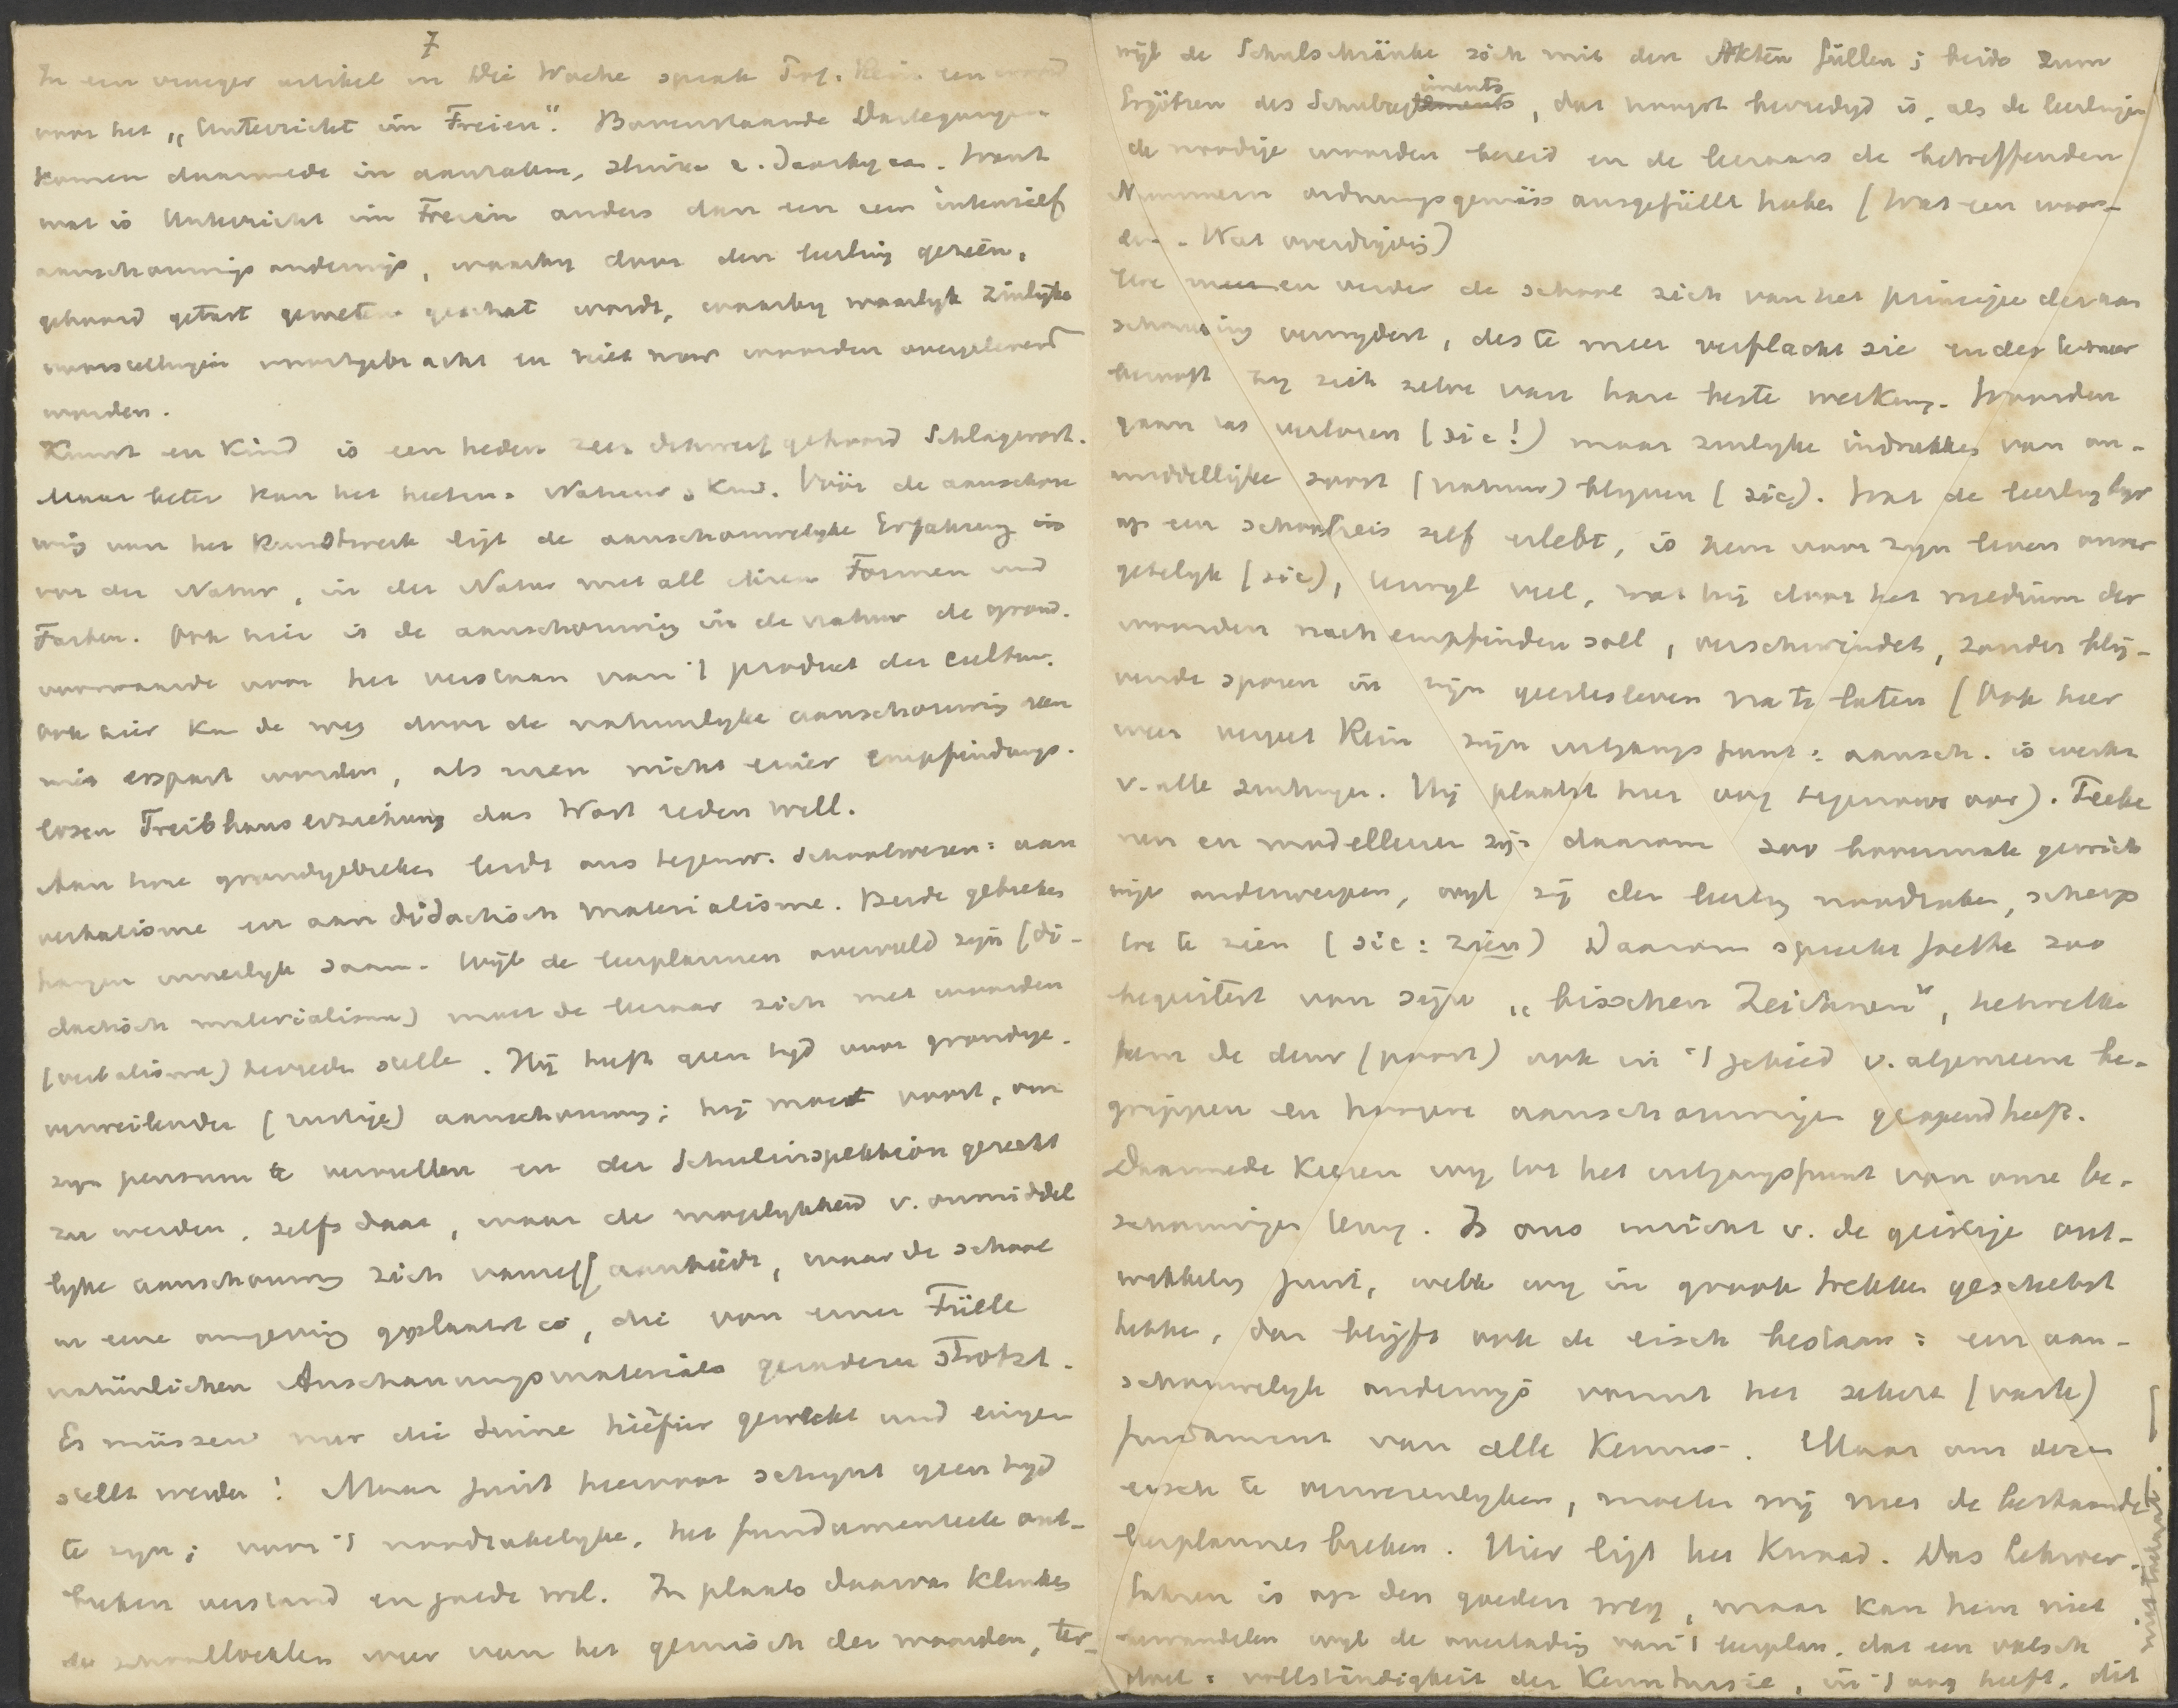 7
In een vroeger artikel in Die Woche sprak Prof. Rein een woord
voor het „Unterricht im Freien". Bovenstaande Darlegungen
komen daarmede in aanraken, sluiten z. daarbij aan. Want
wat is Unterricht im Freien anders dan een zeer intensief
aanschouwings onderwijs, waarbij door den leerling gezien,
gehoord getast gemeten geschat wordt, waarbij waarlijk zinlijke
voorstellingen voortgebracht en niet maar woorden overgeleverd
worden.
Kunst en Kind is een heden zeer dikwerf gehoord Schlagwort.
Maar beter kon het heeten: Natuur & Kind. Vóór de aanschou
wing van het Kunstwerk ligt de aanschouwelijke Erfahrung in
vor der Natur, in der Natur met all ihren Formen und
Farben. Ook hier is de aanschouwing in de natuur de grond.
voorwaarde voor het verstaan van 't product der cultuur.
Ook hier kan de weg door de natuurlijke aanschouwing
niet erspart worden, als men nicht einer empfindungs-
losen Treibhauserziehung das Wort reden will.
Aan twee grondgebreken leidt ons tegenw. schoolwezen: aan
verbalisme en aan didactisch materialisme. Beide gebreken
hangen innerlijk saam. Wijl de leerplannen overvuld zijn (di-
dactisch materialisme) moet de leeraar zich met woorden
(verbalisme) tevreden stellen. Hij heeft geen tijd voor grondige.
verweilender (rustige) aanschouwing; hij moet voort, om
zijn pensum te vervullen en der Schulinspektion gerecht
zu werden, zelfs daar, waar de mogelijkheid v. onmiddel
lijke aanschouwing zich vanself aanbiedt, waar de school
in eene omgeving geplaatst is, die von einer Fülle
natürlichen Anschauungsmaterials geradezu strotzt.
Es müssen nur die Sinne hiefür geweckt und einge
stellt werden! Maar juist hiervoor schijnt geen tijd
te zijn; voor 't noodzakelijke, het fundamenteele ont-
breken verstand en goede wil. In plaats daarvan klinken
de schoollokalen weer van het gemisch der woorden, ter-
wijl de Schulschränke sich mit den Akten füllen; beide zum
Ergötzen des Schulregiments, dat hoogst bevredigd is, als de leerlingen
de noodige woorden bereid en de leeraars de betreffenden
Nummern ordnungsgemäss ausgefüllt haben (Wat een woor-
den. Wat overdrijving)
Hoe meer en verder de school zich van het principe der aan
schouwing verwijdert, des te meer verflacht sie en der leeraar
berooft hij zich zelve van hare beste werking. Woorden
gaan las verloren (sic!) maar zinlijke indrukken van on-
middellijke soort (natuur) blijven (sic). Wat de leerling bijv
op een schoolreis zelf erlebt, is hem voor zijn leven onver
getelijk (sic), terwijl veel, wat hij door het medium der
woorden nachempfinden soll, verschwindet, zonder blij-
vende sporen in zijn geestesleven na te laten (Ook hier
weer vergeet Rein zijn uitgangspunt: aansch. is werk
v. alle zintuigen. Hij plaatst hier oog tegenover oor). Teeke
nen en modelleren zijn daarom zoo bovenmate gewich
tige onderwerpen, wijl zij den leerling noodzaken, scherp
toe te zien (sic: zien) Daarom spreekt Goethe zoo
begeistert van zijn „bisschen Zeichnen", hetwelke
hem de deur (poort) ook in 't gebied v. algemeene be-
grippen en hoogere aanschouwingen geopend heeft.
Daarmede keeren wij tot het uitgangspunt van onze be-
schouwingen terug. Is ons inricht v. de geistige ont-
wikkeling juist, welke wij in groote trekken geschetst
hebben, dan blijft ook de eisch bestaan: een aan-
schouwelijk onderwijs vormt het zekere (vaste)
fundament van alle Kennis. Maar om dezen
eisch te verwezenlijken, moeten wij met de bestaande
leerplannen breken. Hier ligt het Kwaad. Das Lehrver-
fahren is op den goeden weg, maar kan hem niet
bewandelen wijl de overlading van 't leerplan, dat een valsch
doel: vollständigkeit der Kenntnisse, in 't oog heeft, dit
niet toelaat.